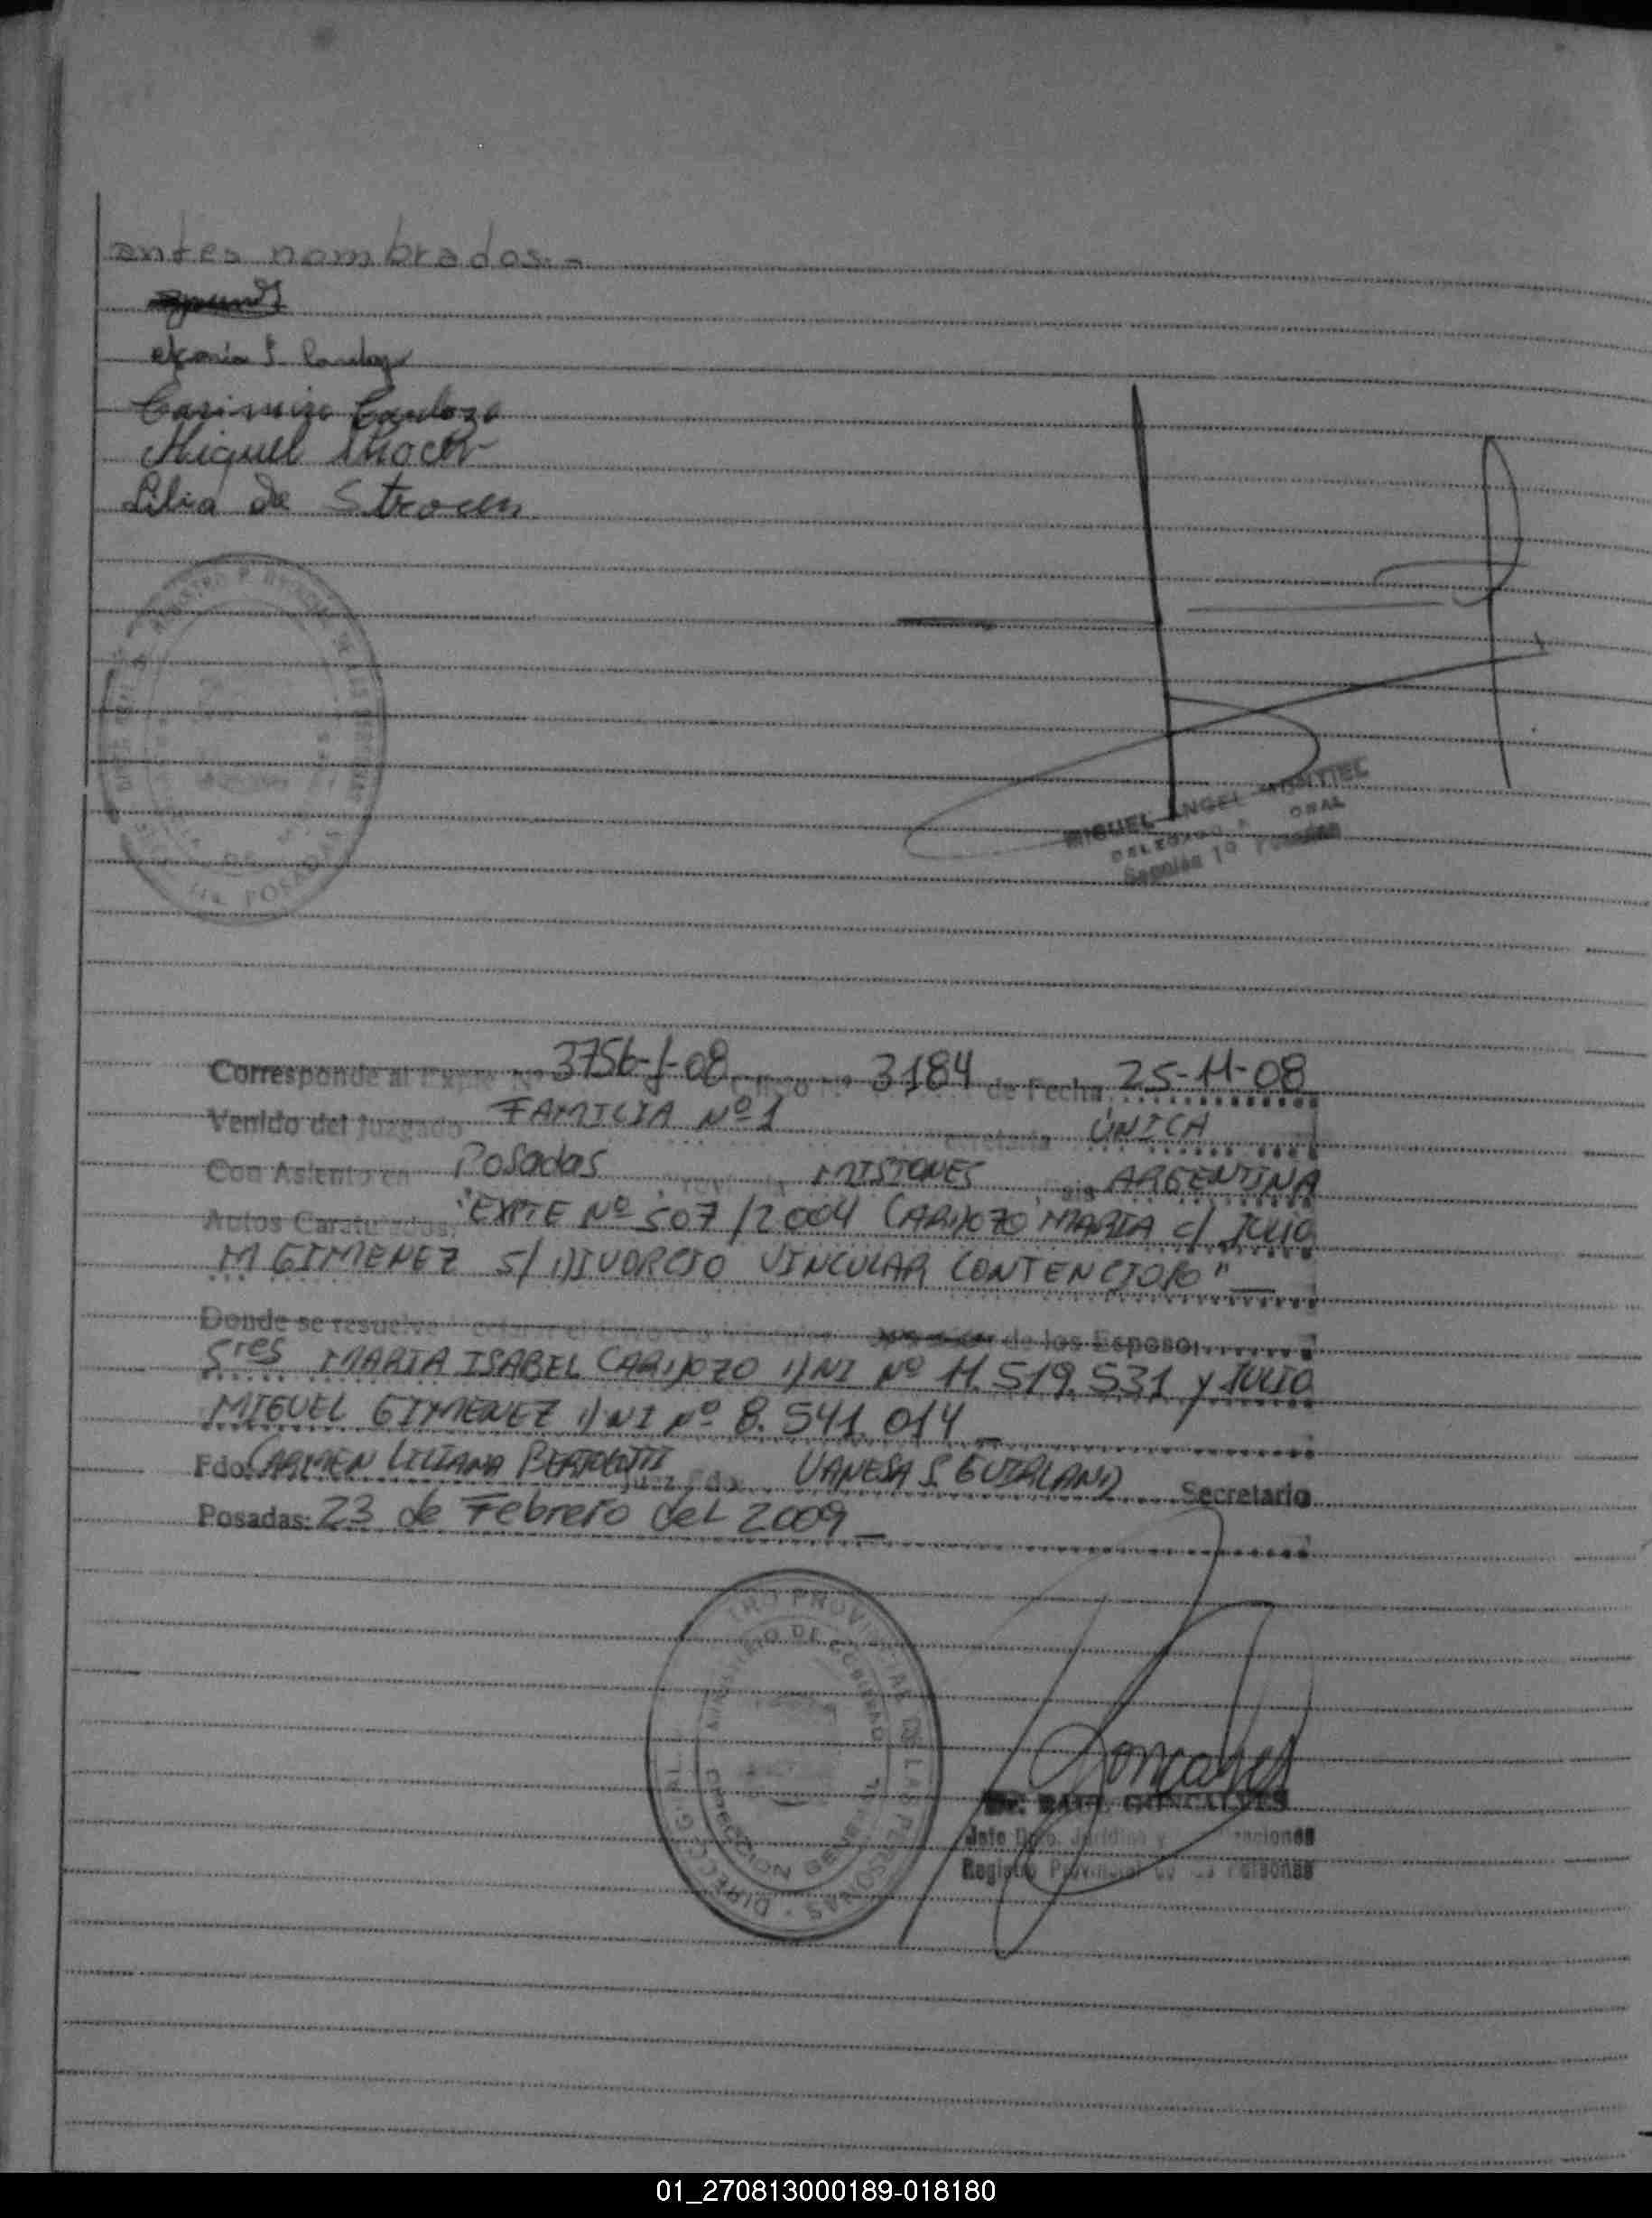 antes nombrados.-
Casimiro Cardozo
Miguel
Lilia de Strocen
MIGUEL ANGEL
DELEGADO
Sección 1ª
POSADAS
Corresponde al Expte Nº 3756-J-08 Oficio Nº 3184 de Fecha 25-11-08
Venido del Juzgado FAMILIA Nº 1 Secretaría ÚNICA
Con Asiento en Posadas Provincia MISIONES País ARGENTINA
Autos Caratulados: "EXPTE Nº 507/2004 CARDOZO MARIA C/ JULIO
M GIMENEZ S/ DIVORCIO VINCULAR CONTENCIOSO"
Donde se resuelve de los Esposo:
Sres MARIA ISABEL CARDOZO DNI Nº 11.519.531 y JULIO
MIGUEL GIMENEZ DNI Nº 8.541.014
Fdo. CARMEN LILIANA Juez Fdo. VANESA S. Secretario
Posadas: 23 de Febrero del 2009
PROVINCIAL DE LAS PERSONAS
MINISTERIO DE GOBIERNO
DIRECCION GENERAL
Dr. RAUL GONCALVES
Jefe Dpto. Jurídico y
Registro Provincial de las Personas
01_270813000189-018180